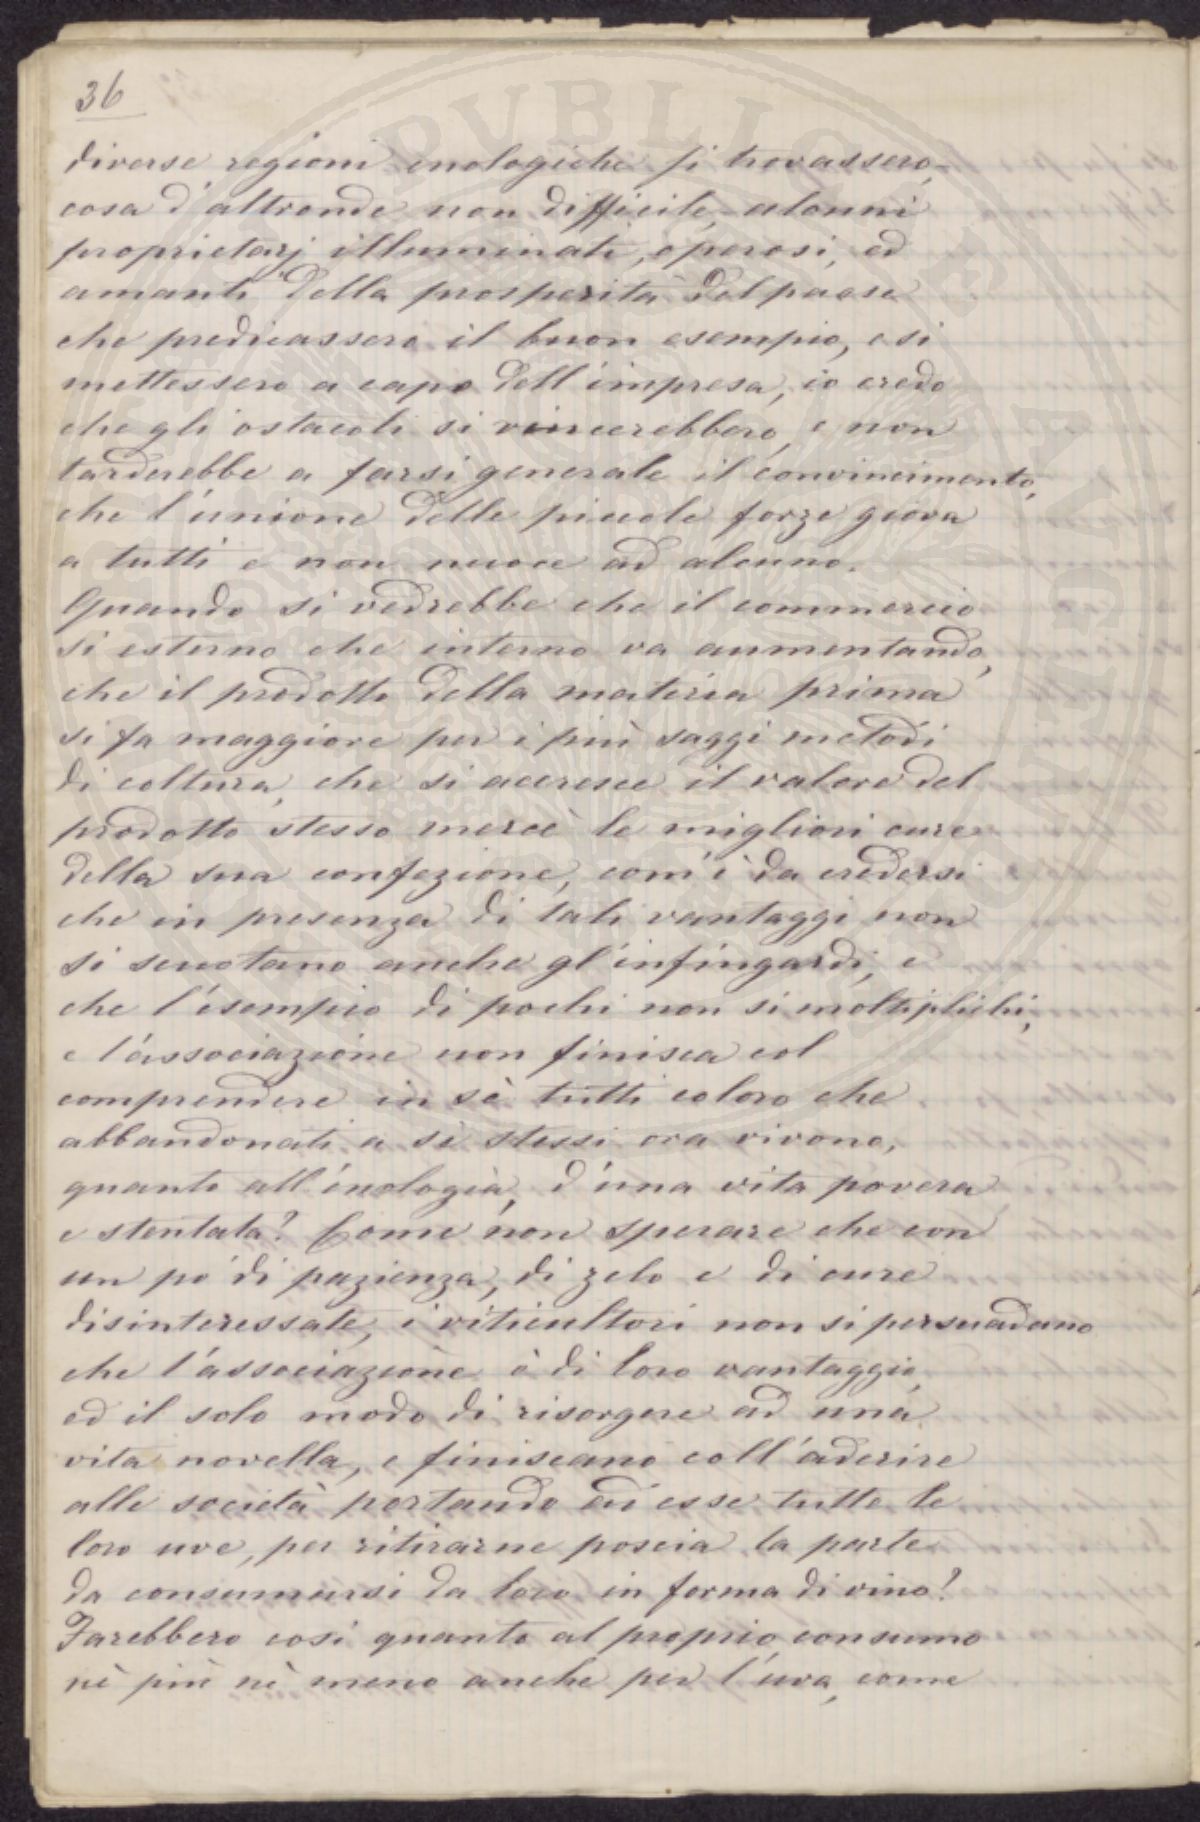 36
diverse regioni enologiche si trovassero,
cosa d'altronde non difficile, alcuni
proprietarj illuminati, operosi, ed
amanti della prosperità del paese
che predicassero il buon esempio, e si
mettessero a capo dell'impresa, io credo
che gli ostacoli si vincerebbero, e non
tarderebbe a farsi generale il convincimento,
che l'unione delle piccole forze giova
a tutti e non nuoce ad alcuno.
Quando si vedrebbe che il commercio
si esterno che interno va aumentando,
che il prodotto della materia prima
si fa maggiore per i più saggi metodi
di coltura, che si accresce il valore del
prodotto stesso mercè le migliori cure
della sua confezione, com'è da credersi
che in presenza di tali vantaggi non
si scuotano anche gl'infingardi, e
che l'esempio di pochi non si moltiplichi,
e l'associazione non finisca col
comprendere in sè tutti coloro che
abbandonati a sè stessi ora vivono,
quanto all'enologia, d'una vita povera
e stentata? Come non sperare che con
un po' di pazienza, di zelo e di cure
disinteressate, i viticultori non si persuadano
che l'associazione è di loro vantaggio,
ed il solo modo di risorgere ad una
vita novella, e finiscano coll'aderire
alle società portando ad esse tutte le
loro uve, per ritirarne poscia la parte
da consumarsi da loro in forma di vino?
Farebbero così quanto al proprio consumo
nè più nè meno anche per l'uva, come